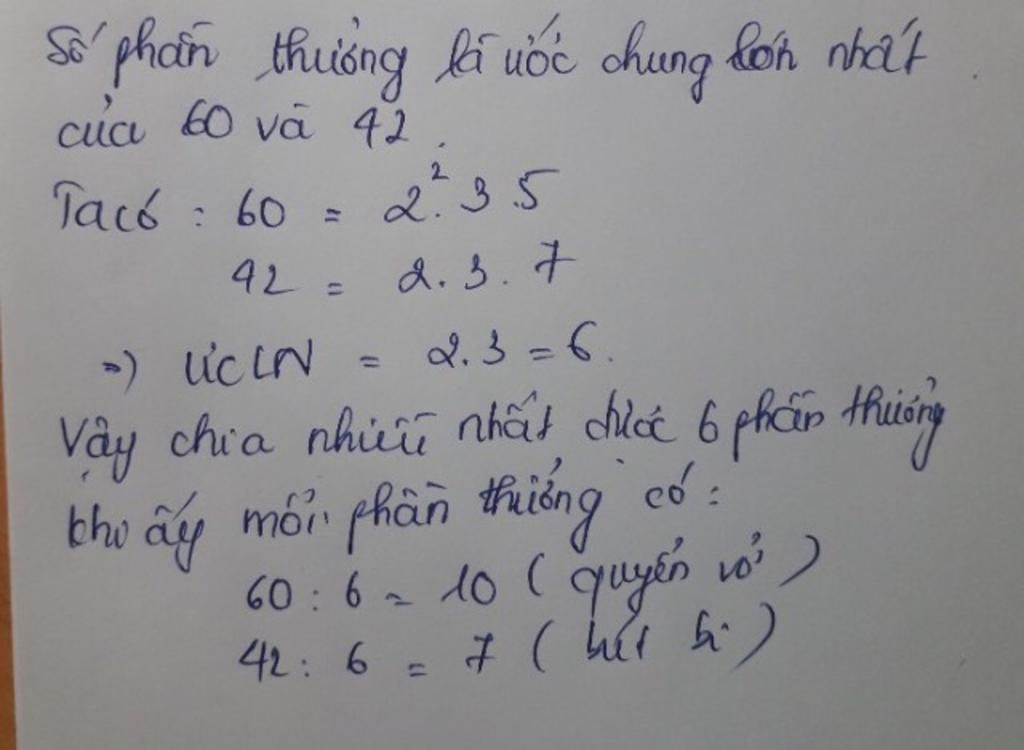 Số phần thưởng là ước chung lớn nhất
của 60 và 42.
Ta có : 60 = 2².3.5
42 = 2.3.7
=> ƯCLN = 2.3 = 6.
Vậy chia nhiều nhất được 6 phần thưởng
khi ấy mỗi phần thưởng có :
60 : 6 = 10 ( quyển vở )
42 : 6 = 7 ( bút bi )